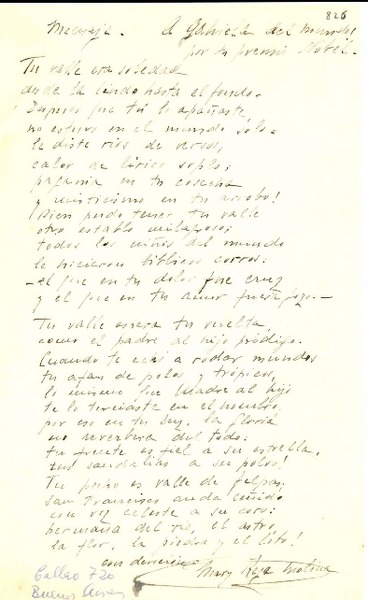 826
Mensaje. A Gabriela del mundo!
por su premio Nobel.
Tu valle era soledad
desde la linde hasta el fondo.
Después que tú lo apañaste,
no estuvo en el mundo solo.
le diste ríos de versos,
calor de lírico soplo;
pagania en tu cosecha
y misticismo en tu arrobo!
Bien pudo tener tu valle
otro establo milagroso;
todos los niños del mundo
le hicieron bíblicos corros:
- el que en tu dolor fue cruz
y el que en tu amor fuera gozo. -
Tu valle espera tu vuelta
como el padre al hijo pródigo.
Cuando te echó a rodar mundos
tu afán de polos y trópicos,
lo mismo que Madre al hijo
te lo terciaste en el hombro,
por eso en tu ser, la gloria
no reverbera del todo:
tu frente es fiel a su estrella,
tus sandalias a su polvo!
Tu pecho es valle de felpas;
San Francisco anda
con voz celeste a su coro:
hermana del río, el astro,
la flor, la piedra y el lobo!
con devoción
Mary Rega Molina
Callao 720
Buenos Aires